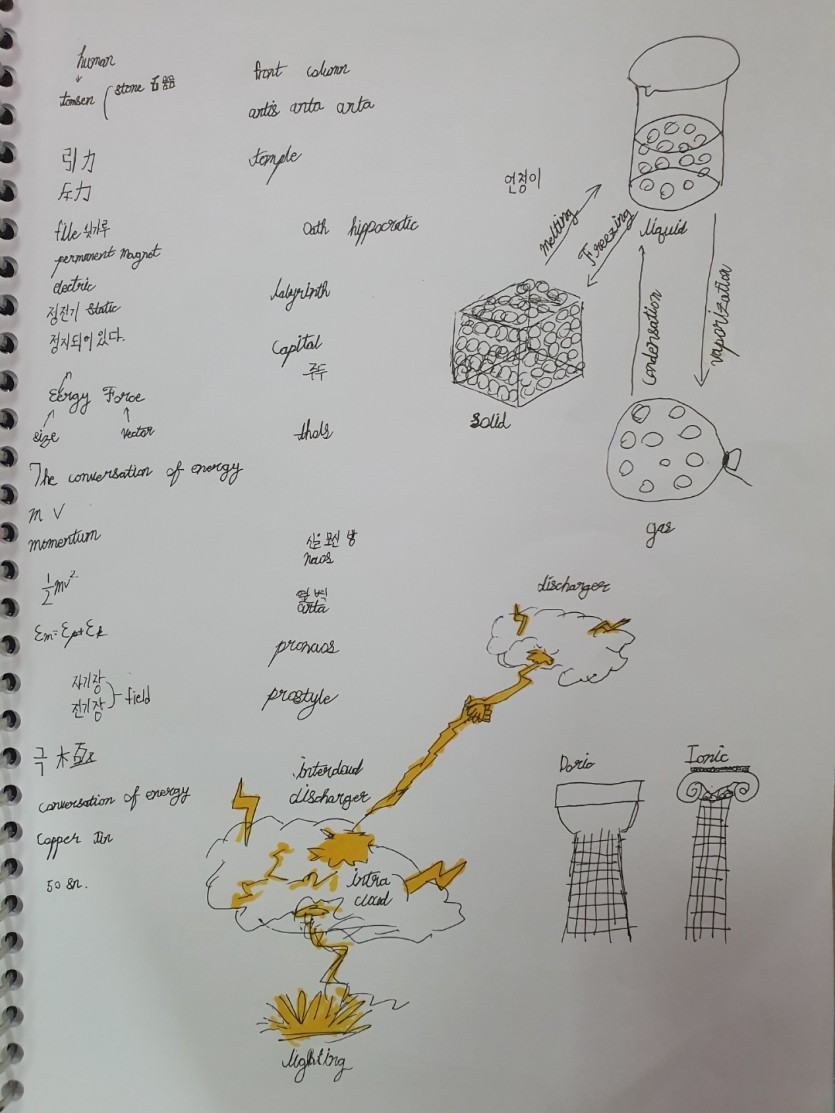 human
stone 石器
引力
圧力
file 쇳가루
permanent magnet
electric
정전기 static
정지되어 있다.
Eergy Force
size vector
The conversation of energy
m V
momentum
1/2 mv²
Em=Ep+Ek
자기장
전기장 field
극 木
conversation of energy
copper tin
50 Sn.
front column
antis anta anta
temple
Oath hippocratic
labyrinth
capital
주두
thols
신을 모신 방
naos
옆 벽
anta
pronaos
prostyle
연정이
melting
Freezing
liquid
solid
condensation
vaporization
gas
discharger
intercloud
discharger
intra
cloud
lighting
Doric
Ionic